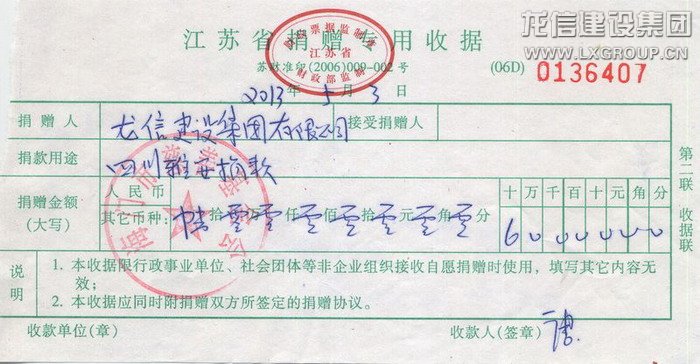 龙信建设集团
WWW.LXGROUP.CN
江苏省捐赠专用收据
江苏省
财政部监制
苏财准印(2006)009-002号
(06D) 0136407
2013年5月3日
捐赠人 龙信建设集团有限公司 接受捐赠人
捐款用途 四川雅安捐款
捐赠金额(大写) 人民币 其它币种: 陆拾零万零仟零佰零拾零元零角零分
十万千百十元角分
60000000
第二联 收据联
说明
1. 本收据限行政事业单位、社会团体等非企业组织接收自愿捐赠时使用，填写其它内容无
效；
2. 本收据应同时附捐赠双方所签定的捐赠协议。
收款单位(章) 收款人(签章)